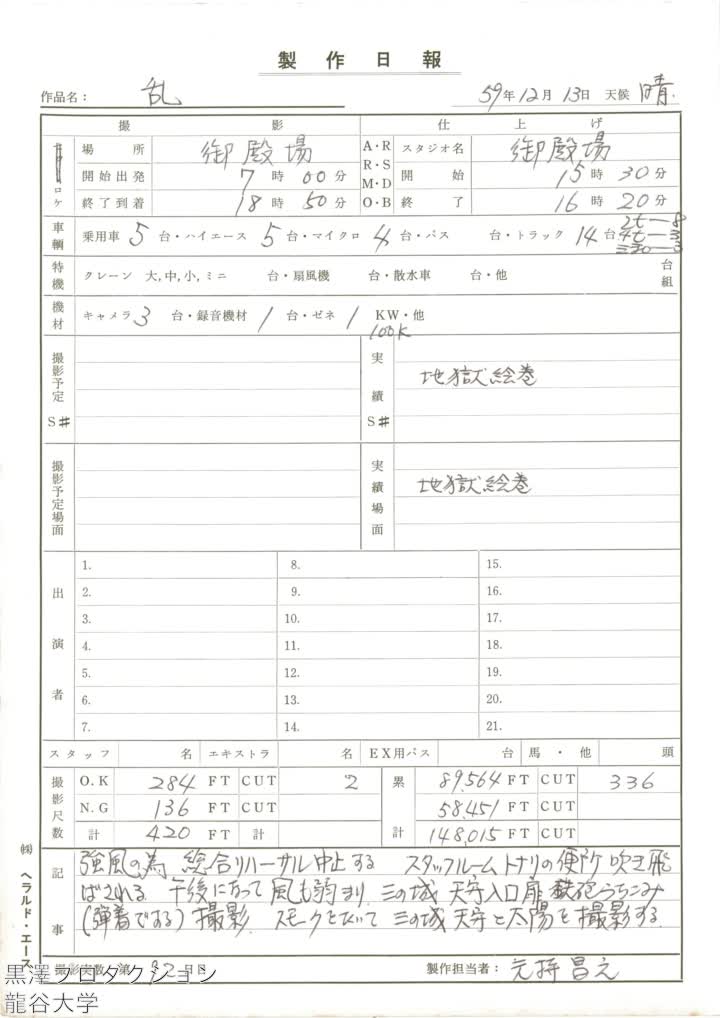 製作日報
作品名: 乱 59年12月13日 天候 晴
撮影 仕上げ
ロケ 場所 御殿場 A・R R・S M・D O・B スタジオ名 御殿場
開始出発 7時00分 開始 15時30分
終了到着 18時50分 終了 16時20分
車輌 乗用車 5台・ハイエース 5台・マイクロ 4台・バス 台・トラック 14台 2t-8 4t-3
特機 クレーン 大,中,小,ミニ 台・扇風機 台・散水車 台・他 台組
機材 キャメラ 3台・録音機材 1台・ゼネ 1 KW・他
100K
撮影予定 S# 実績 S# 地獄絵巻
撮影予定場面 実績場面 地獄絵巻
出演者
1. 8. 15.
2. 9. 16.
3. 10. 17.
4. 11. 18.
5. 12. 19.
6. 13. 20.
7. 14. 21.
スタッフ 名 エキストラ 名 EX用バス 台 馬・他 頭
撮影尺数 O.K 284 FT CUT 2 累計 89,564 FT CUT 336
N.G 136 FT CUT 58,451 FT CUT
計 420 FT 計 148,015 FT CUT
記事 強風の為 総合リハーサル中止する スタッフルームトナリの便所吹き飛
ばされる 午後になって風も弱まり 三の城 天守入口扉 鉄砲うちこみ
(弾着である)撮影 スモークをたいて 三の城 天守と太陽を撮影する
撮影実数 第92日目 製作担当者: 元持昌之
㈱ヘラルド・エース
黒澤プロダクション
龍谷大学